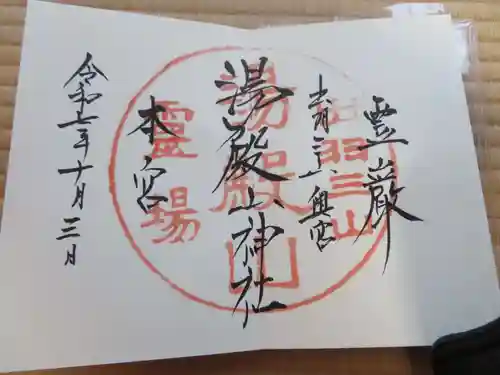 霊巌
奥宮
湯殿山神社
本宮
令和七年十月三日
羽三山
湯殿山
靈場